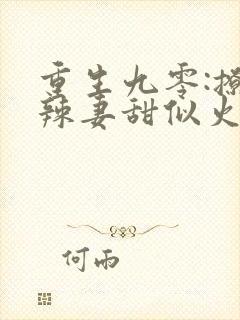 重生九零:撩
辣妻甜似火
何雨